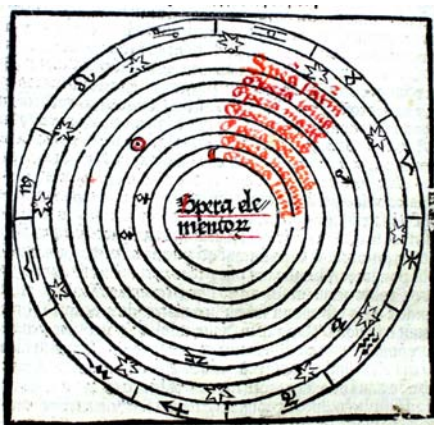 Spera
Spera iouis
Spera martis
Spera solis
Spera veneris
Spera mercurii
Spera lune
Spera ele⸗
mentoꝝ